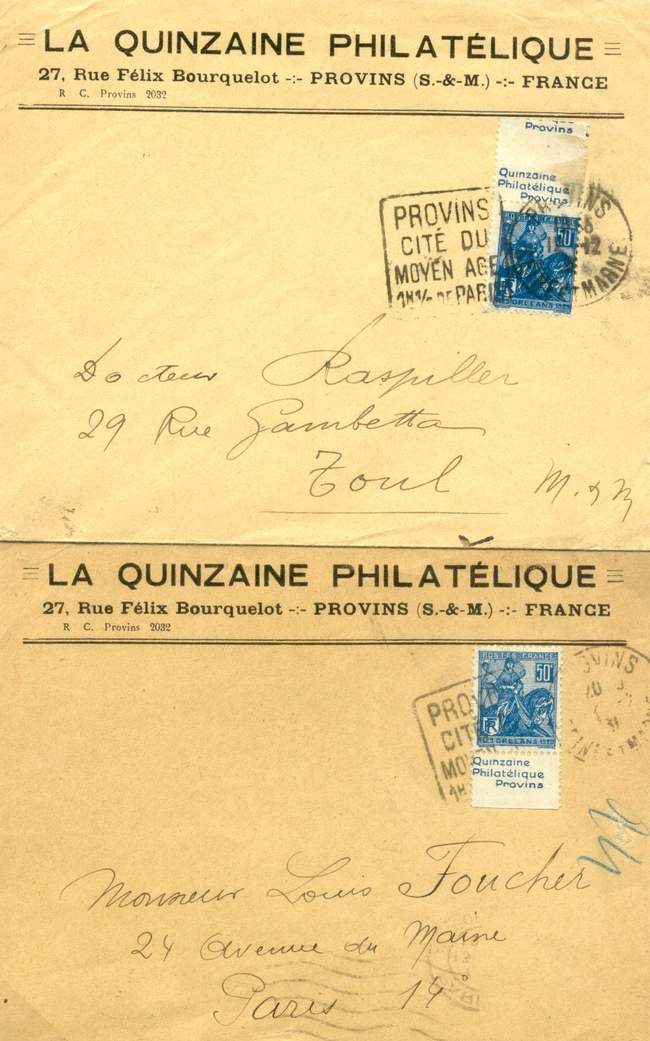 LA QUINZAINE PHILATÉLIQUE
27, Rue Félix Bourquelot -:- PROVINS (S.-&-M.) -:- FRANCE
R C. Provins 2032
Provins
Quinzaine
Philatélique
Provins
PROVINS
CITÉ DU
MOYEN AGE
1H½ DE PARIS
POSTES FRANCE
50c
RF
ORLEANS 1929
Docteur Raspiller
29 Rue Gambetta
Toul M. & M
LA QUINZAINE PHILATÉLIQUE
27, Rue Félix Bourquelot -:- PROVINS (S.-&-M.) -:- FRANCE
R C. Provins 2032
POSTES FRANCE
50c
RF
1429 ORLEANS 1929
PROV
CITÉ
MOY
1H
Quinzaine
Philatélique
Provins
Monsieur Louis Foucher
24 Avenue du Maine
Paris 14